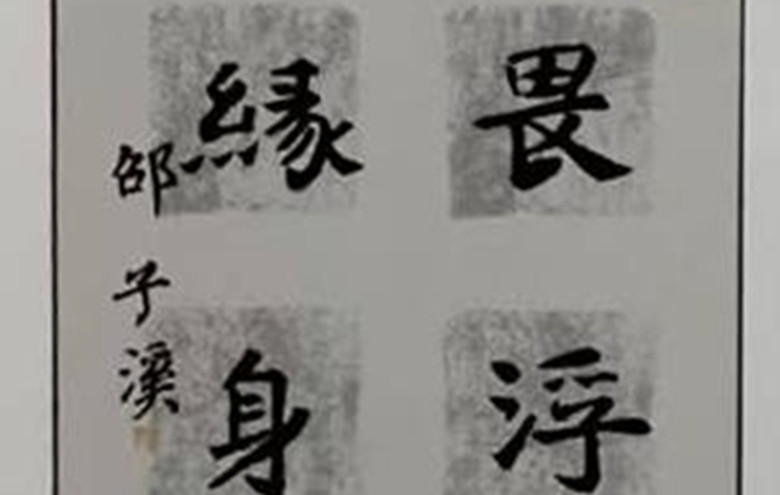 畏浮
緣身
邵子溪